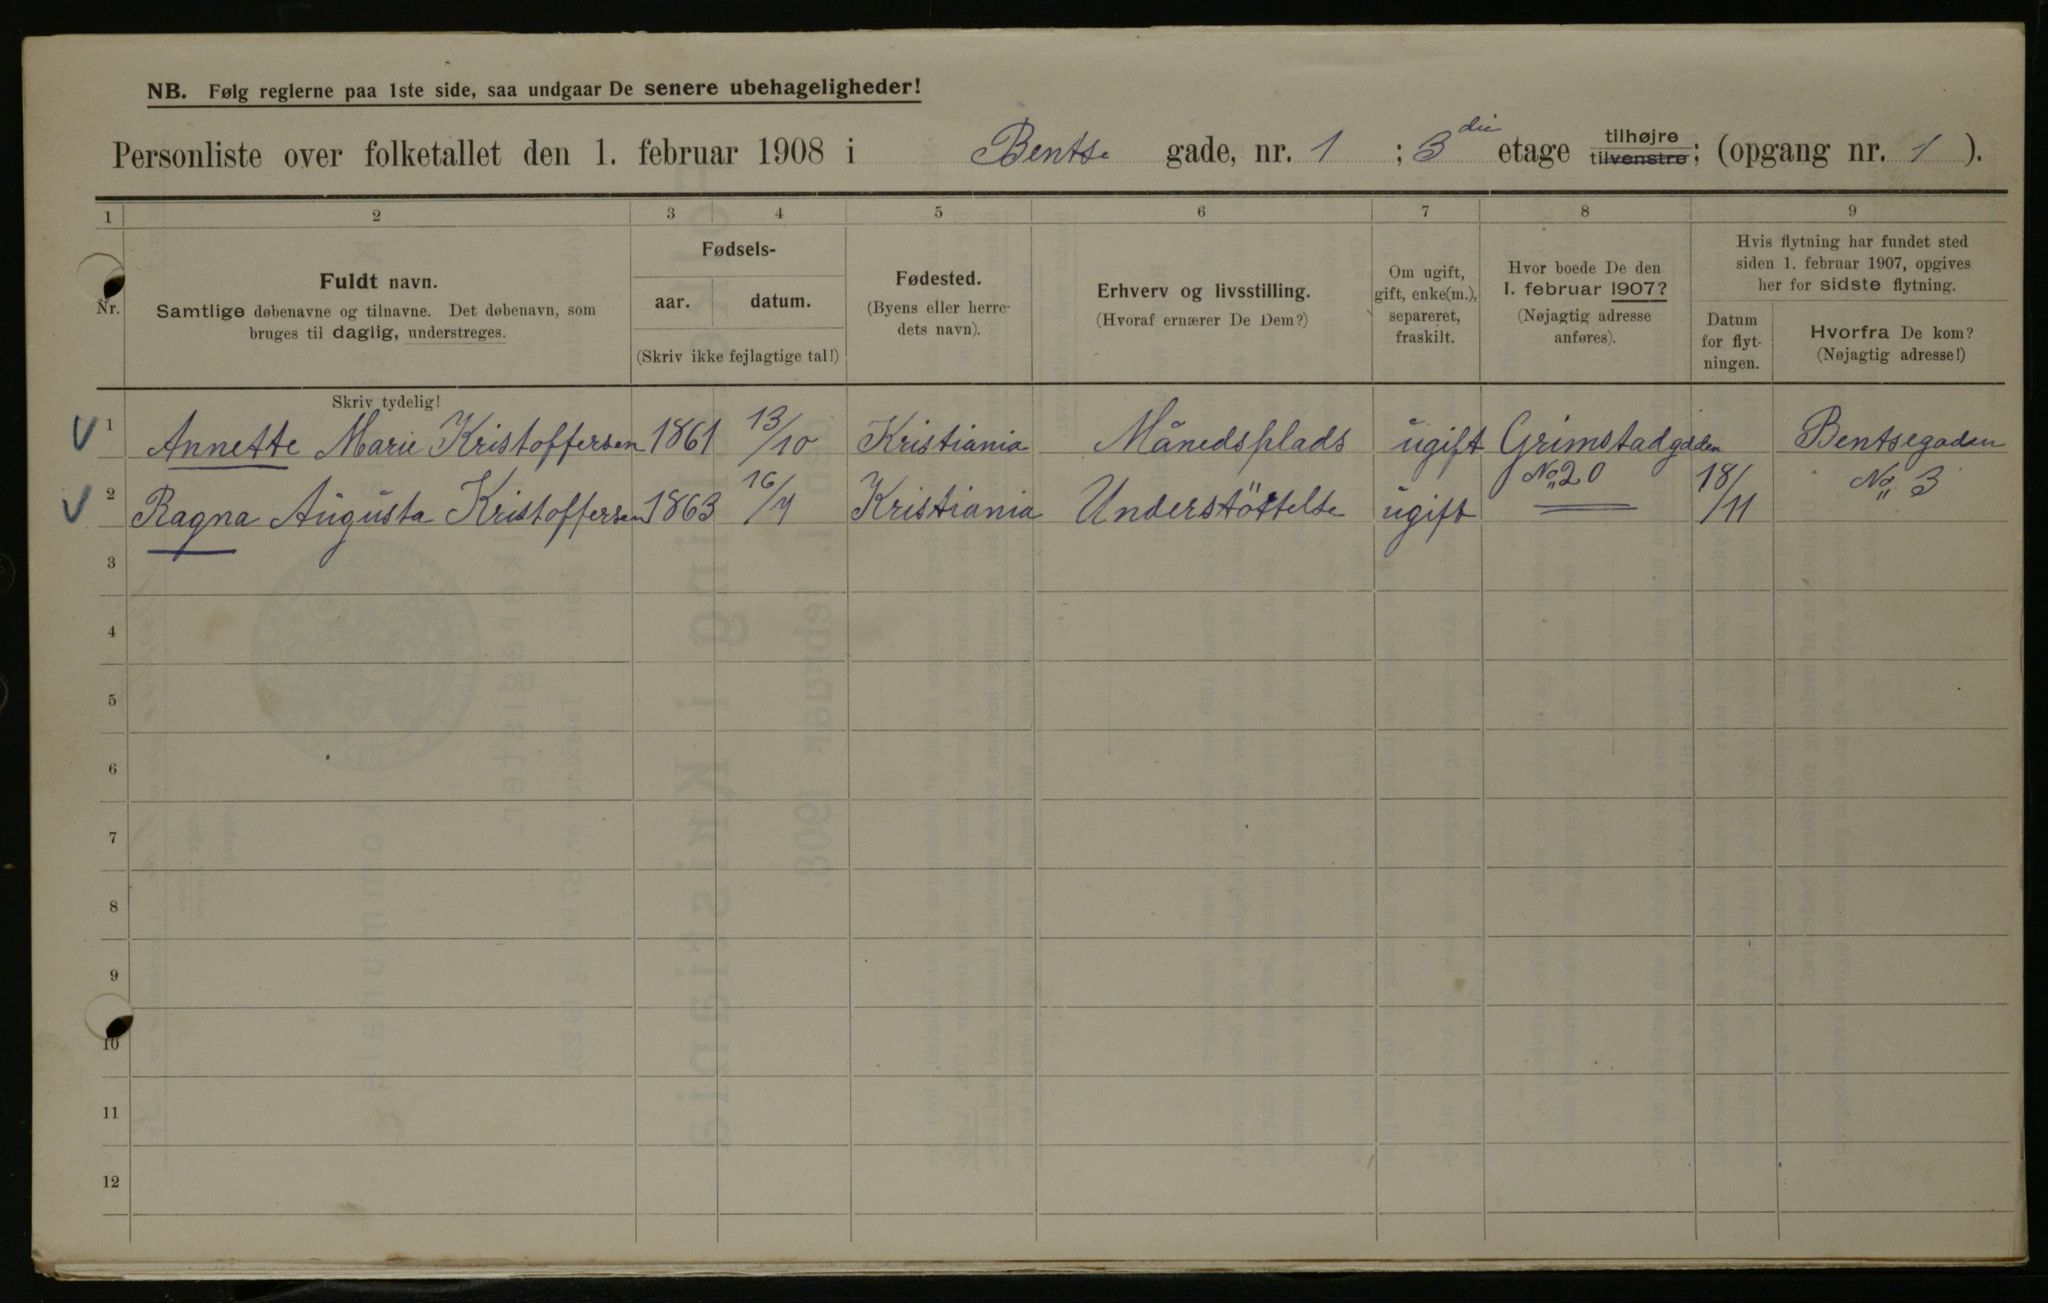 NB. Følg reglerne paa 1ste side, saa undgaar De senere ubehageligheder!
Personliste over folketallet den 1. februar 1908 i Bentse gade, nr. 1 ; 3die etage tilhøjre tilvenstre; (opgang nr. 1 ).
1 2 3 4 5 6 7 8 9
Nr.
Fuldt navn.
Samtlige døbenavne og tilnavne. Det døbenavn, som
bruges til daglig, understreges.
Fødsels-
aar. datum.
(Skriv ikke fejlagtige tal!)
Fødested.
(Byens eller herre-
dets navn).
Erhverv og livsstilling.
(Hvoraf ernærer De Dem?)
Om ugift,
gift, enke(m.),
separeret,
fraskilt.
Hvor boede De den
1. februar 1907?
(Nøjagtig adresse
anføres).
Hvis flytning har fundet sted
siden 1. februar 1907, opgives
her for sidste flytning.
Datum
for flyt-
ningen.
Hvorfra De kom?
(Nøjagtig adresse!)
Skriv tydelig!
1 Annette Marie Kristoffersen 1861 13/10 Kristiania Månedsplads ugift Grimstadgaden Bentsegaden
No 20 18/11 No 3
2 Ragna Augusta Kristoffersen 1863 16/7 Kristiania Understöttelse ugift
3
4
5
6
7
8
9
10
11
12